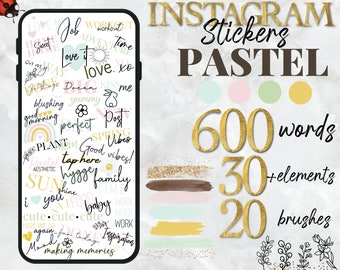 INSTAGRAM
Stickers
PASTEL
600 words
30 +elements
20 brushes
Job
WORKOUT
Sweet
workout
time
love it
love.
xo
me
Dream
yummy
blushing
good
morning
perfect
Post
Vibes
PLANT
Good vibes!
AESTHETIC
tap here
SUN
hygge
family
you
shine
baby
WORK
cute · cute · cute
again
making memories